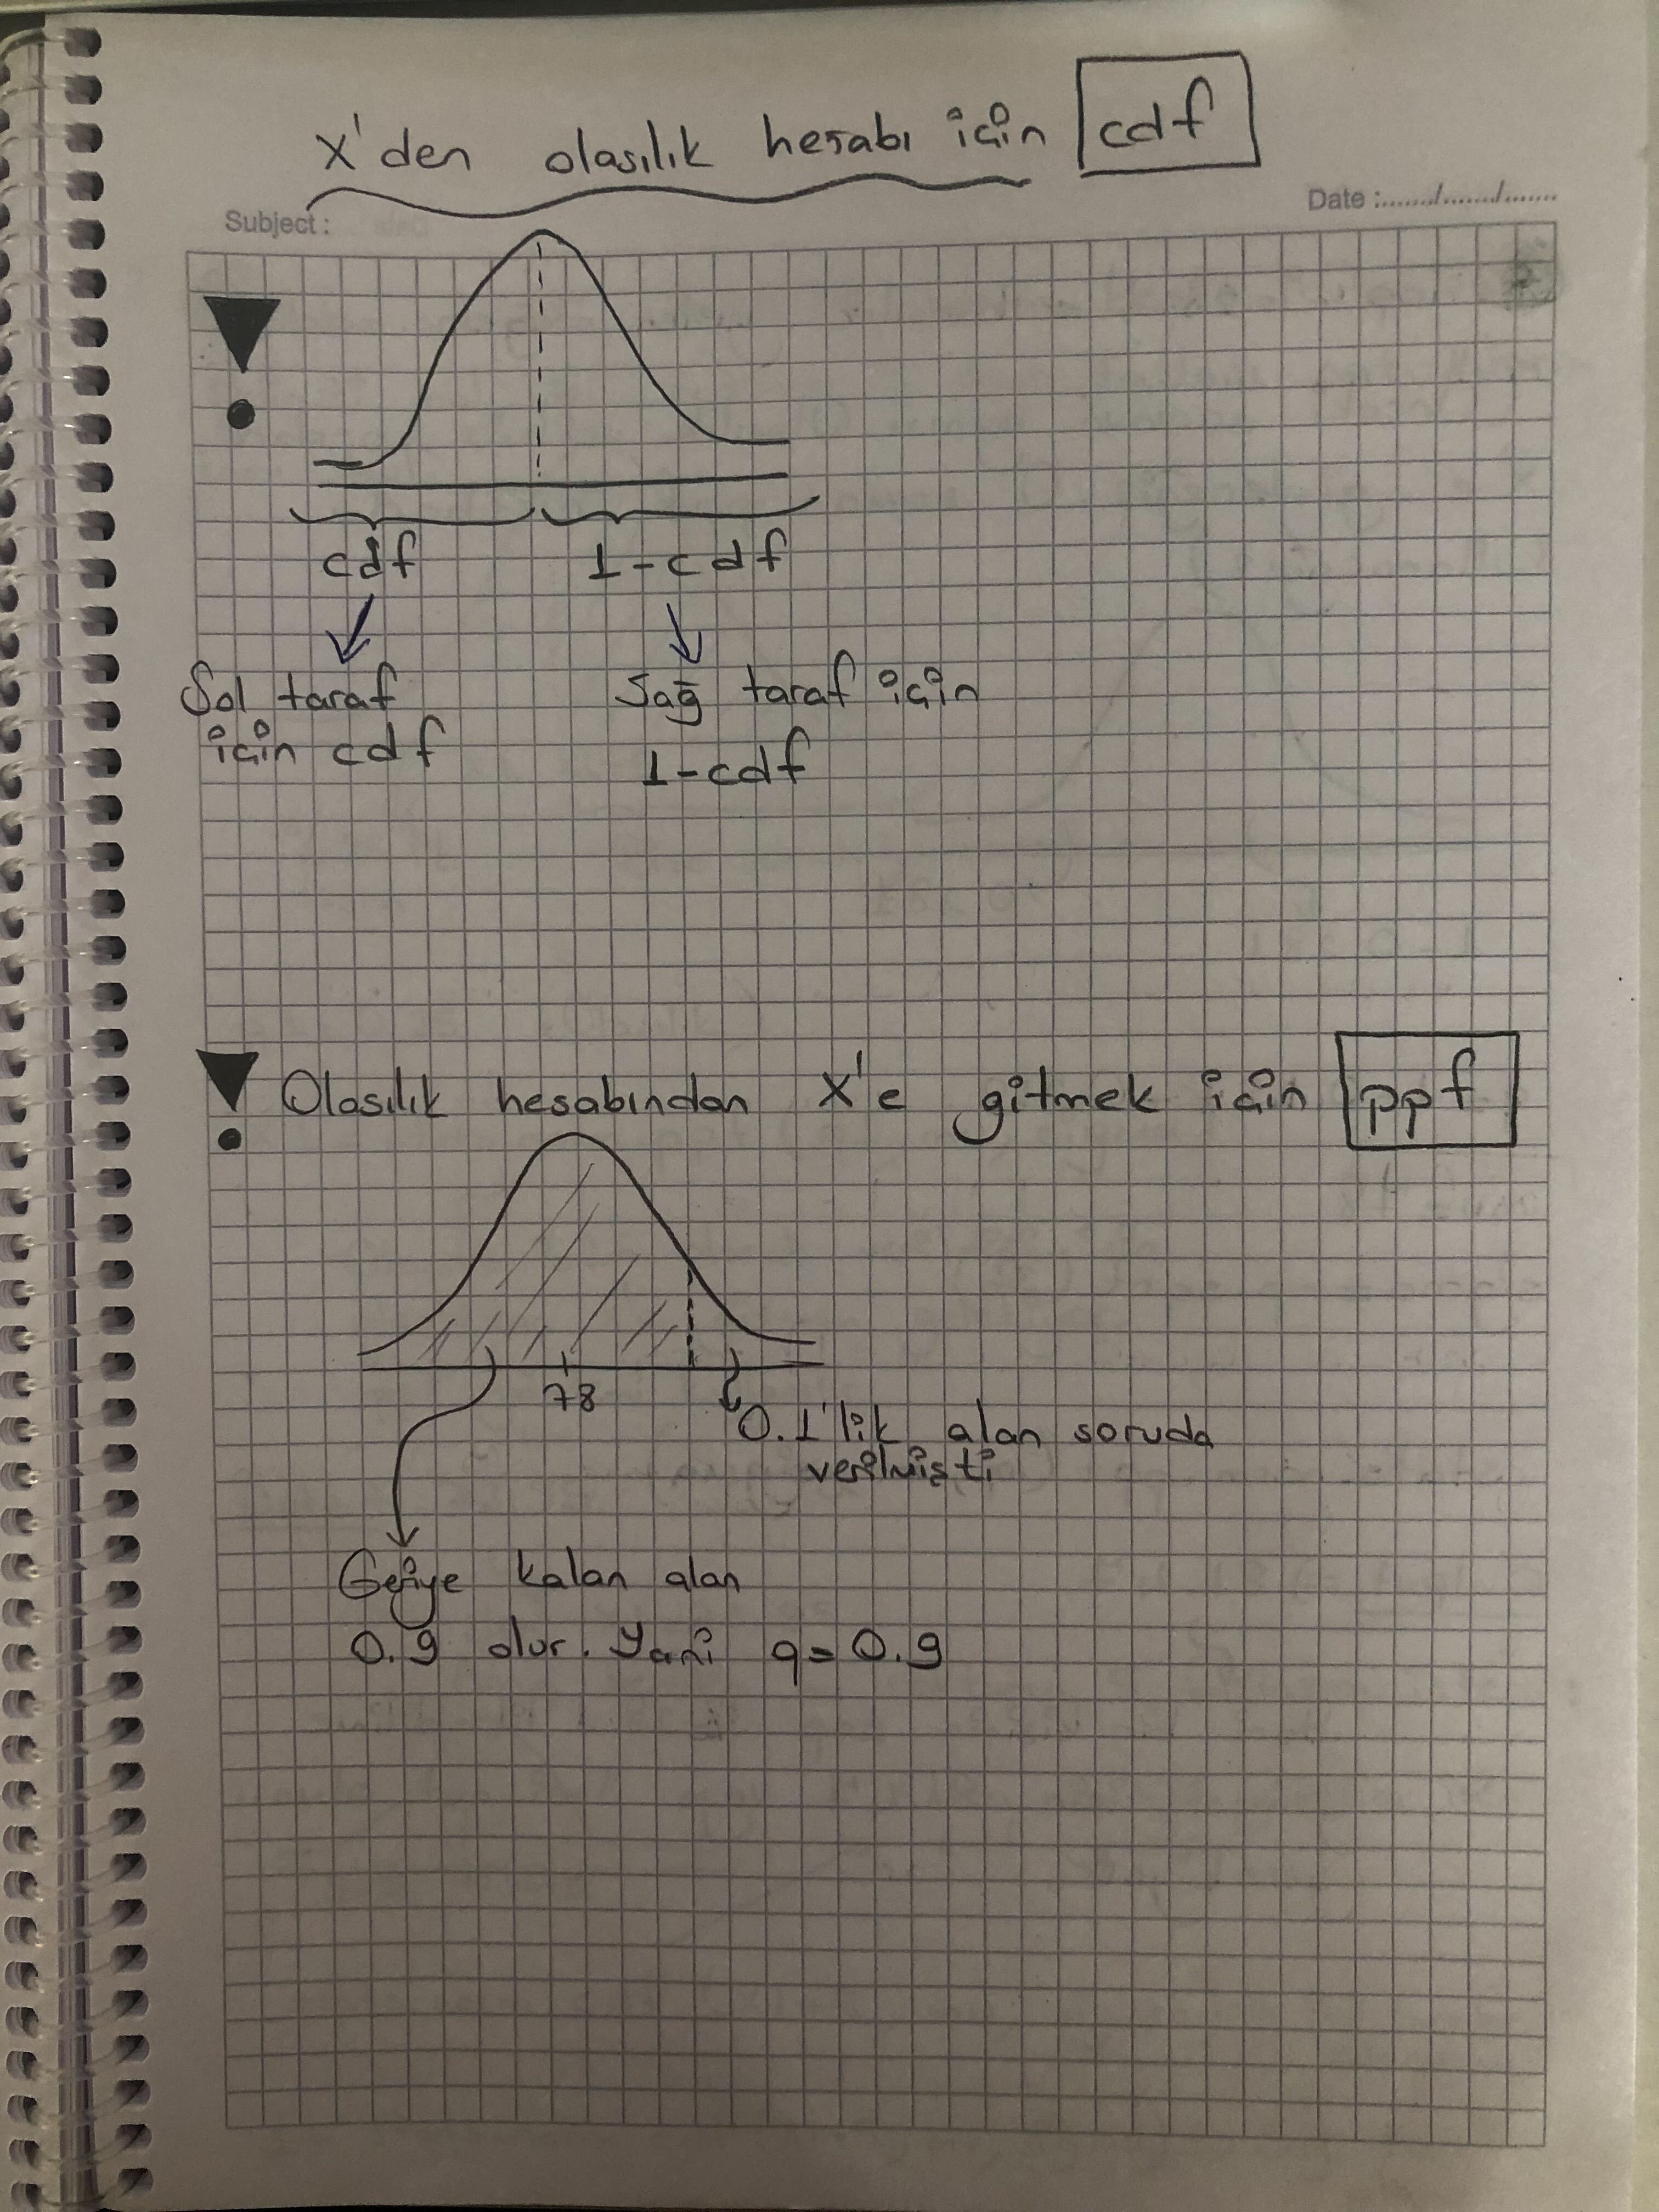 X'den olasılık hesabı için cdf
Date :....../......./.......
Subject :
cdf 1-cdf
Sol taraf
için cdf
Sağ taraf için
1-cdf
Olasılık hesabından X'e gitmek için ppf
78
0.1'lik alan soruda
verilmişti
Geriye kalan alan
0.9 olur. Yani q=0.9